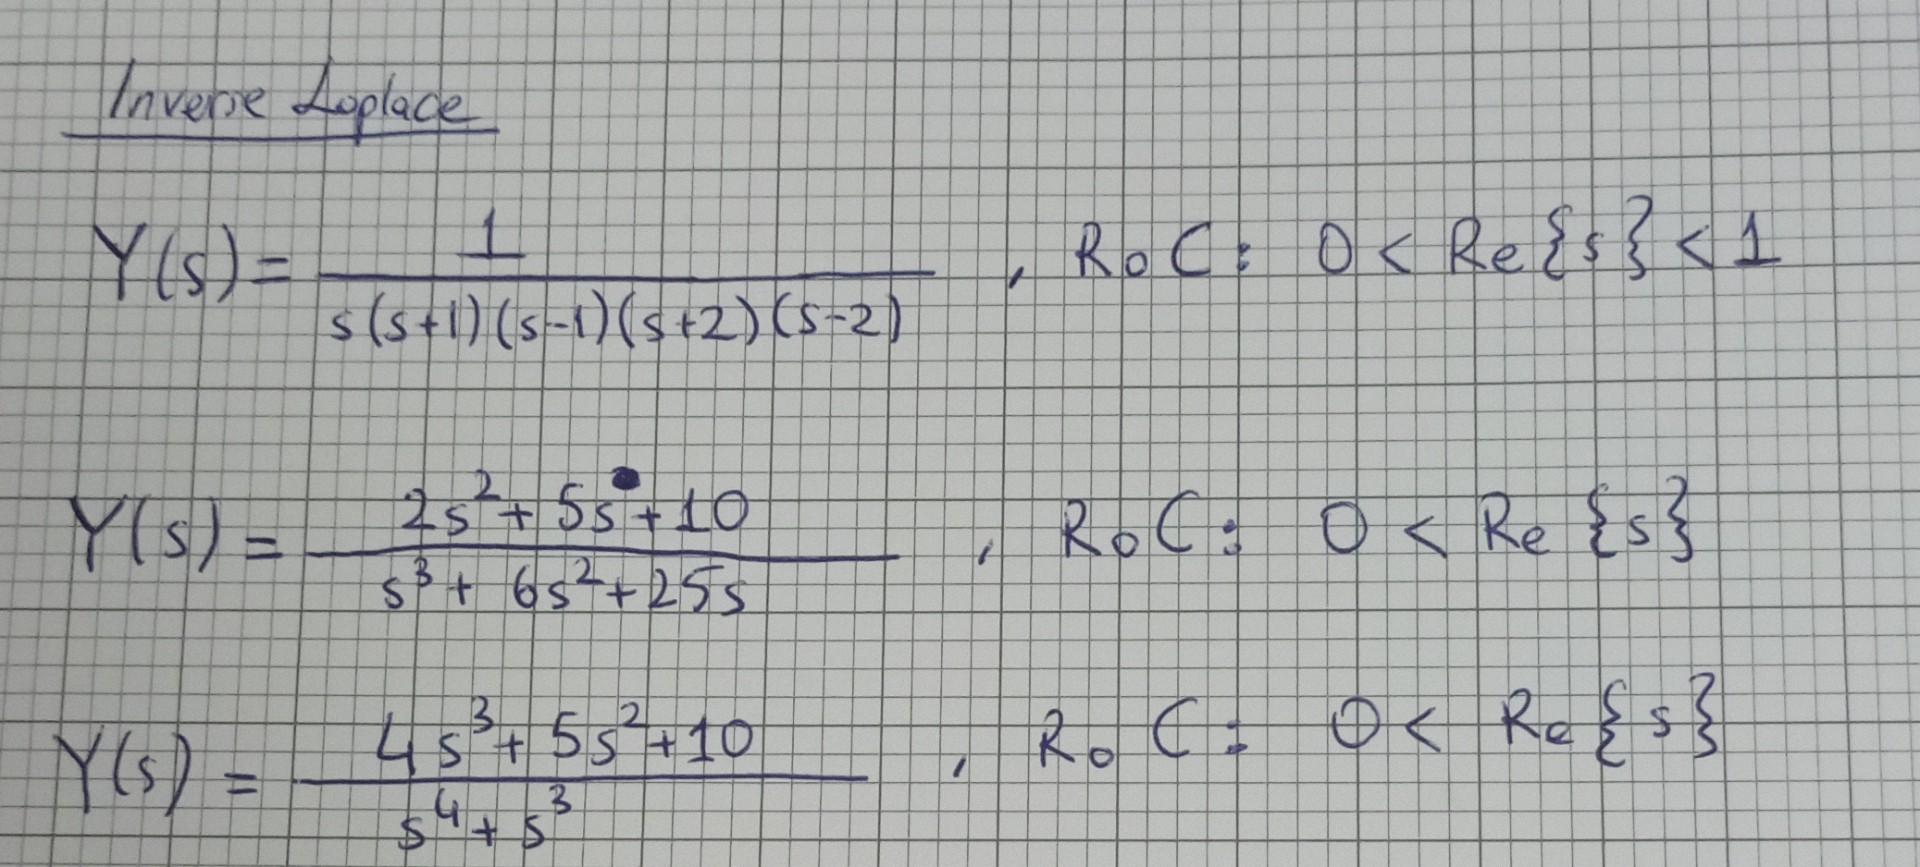 Inverse Laplace
Y(s) = 1 / s(s+1)(s-1)(s+2)(s-2) , RoC: 0 < Re{s} < 1
Y(s) = 2s² + 5s + 10 / s³ + 6s² + 25s , RoC: 0 < Re{s}
Y(s) = 4s³ + 5s² + 10 / s⁴ + s³ , RoC: 0 < Re{s}